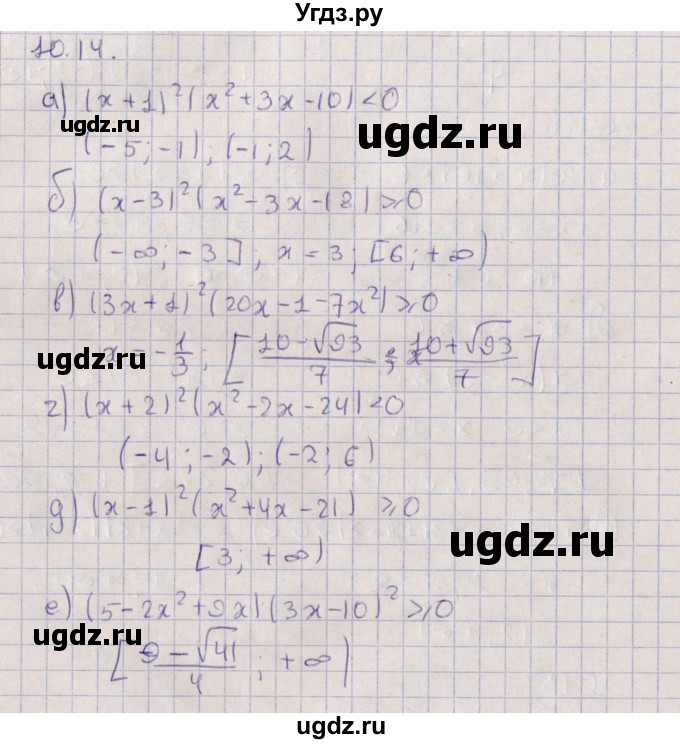 Угдз.ру
10.14.
а) (x+1)²(x²+3x-10)<0
ugdz.ru
ugdz.ru
(-5;-1);(-1;2)
б) (x-3)²(x²-3x-18)≥0
(-∞;-3]; x=3; [6;+∞)
в) (3x+1)²(20x-1-7x²)≥0
ugdz.ru
x=-1/3; [(10-√93)/7; (10+√93)/7]
ugdz.ru
г) (x+2)²(x²-2x-24)<0
(-4;-2);(-2;6)
д) (x-1)²(x²+4x-21) ≥0
ugdz.ru
[3; +∞)
е) (5-2x²+9x)(3x-10)²≥0
[(9-√41)/4; +∞)
ugdz.ru
ugdz.ru
ugdz.ru